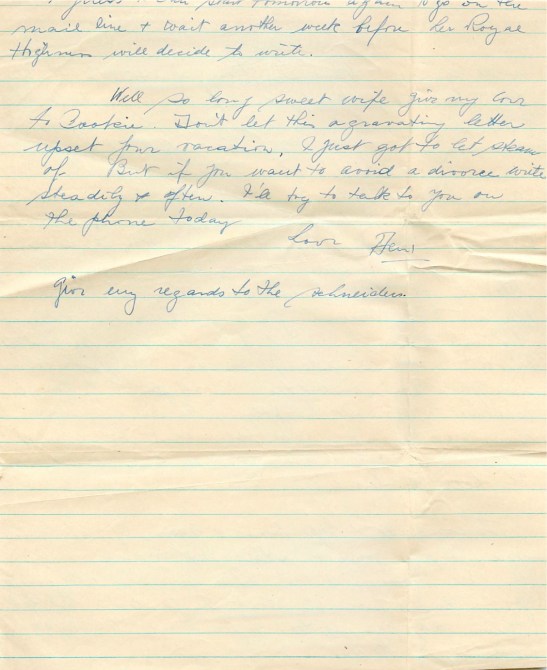 start tomorrow again to go on the
mail line + wait another week before her Royal
Highness will decide to write.
Well so long sweet wife give my love
to Bookie. Don't let this agravating letter
upset your vacation, I just got to let steam
of. But if you want to avoid a divorce write
steadily & often. I'll try to talk to you on
the phone today
Love
Give my regards to the Schneiders.